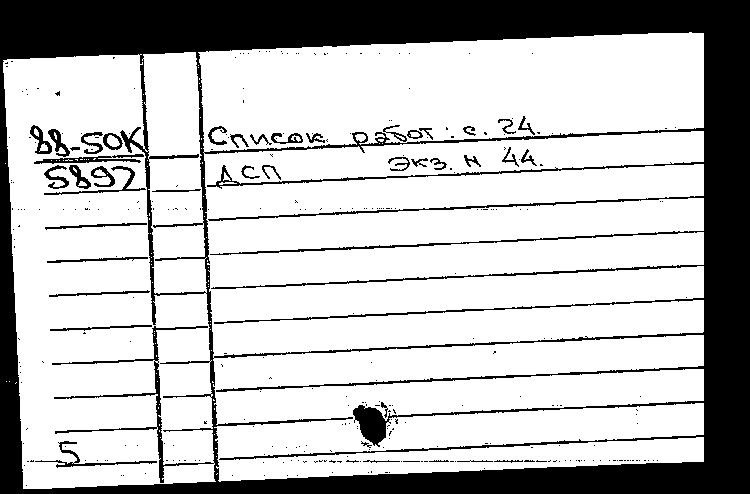 88-5OK Список работ: с. 24.
5897 ДСП Экз. N 44.
5